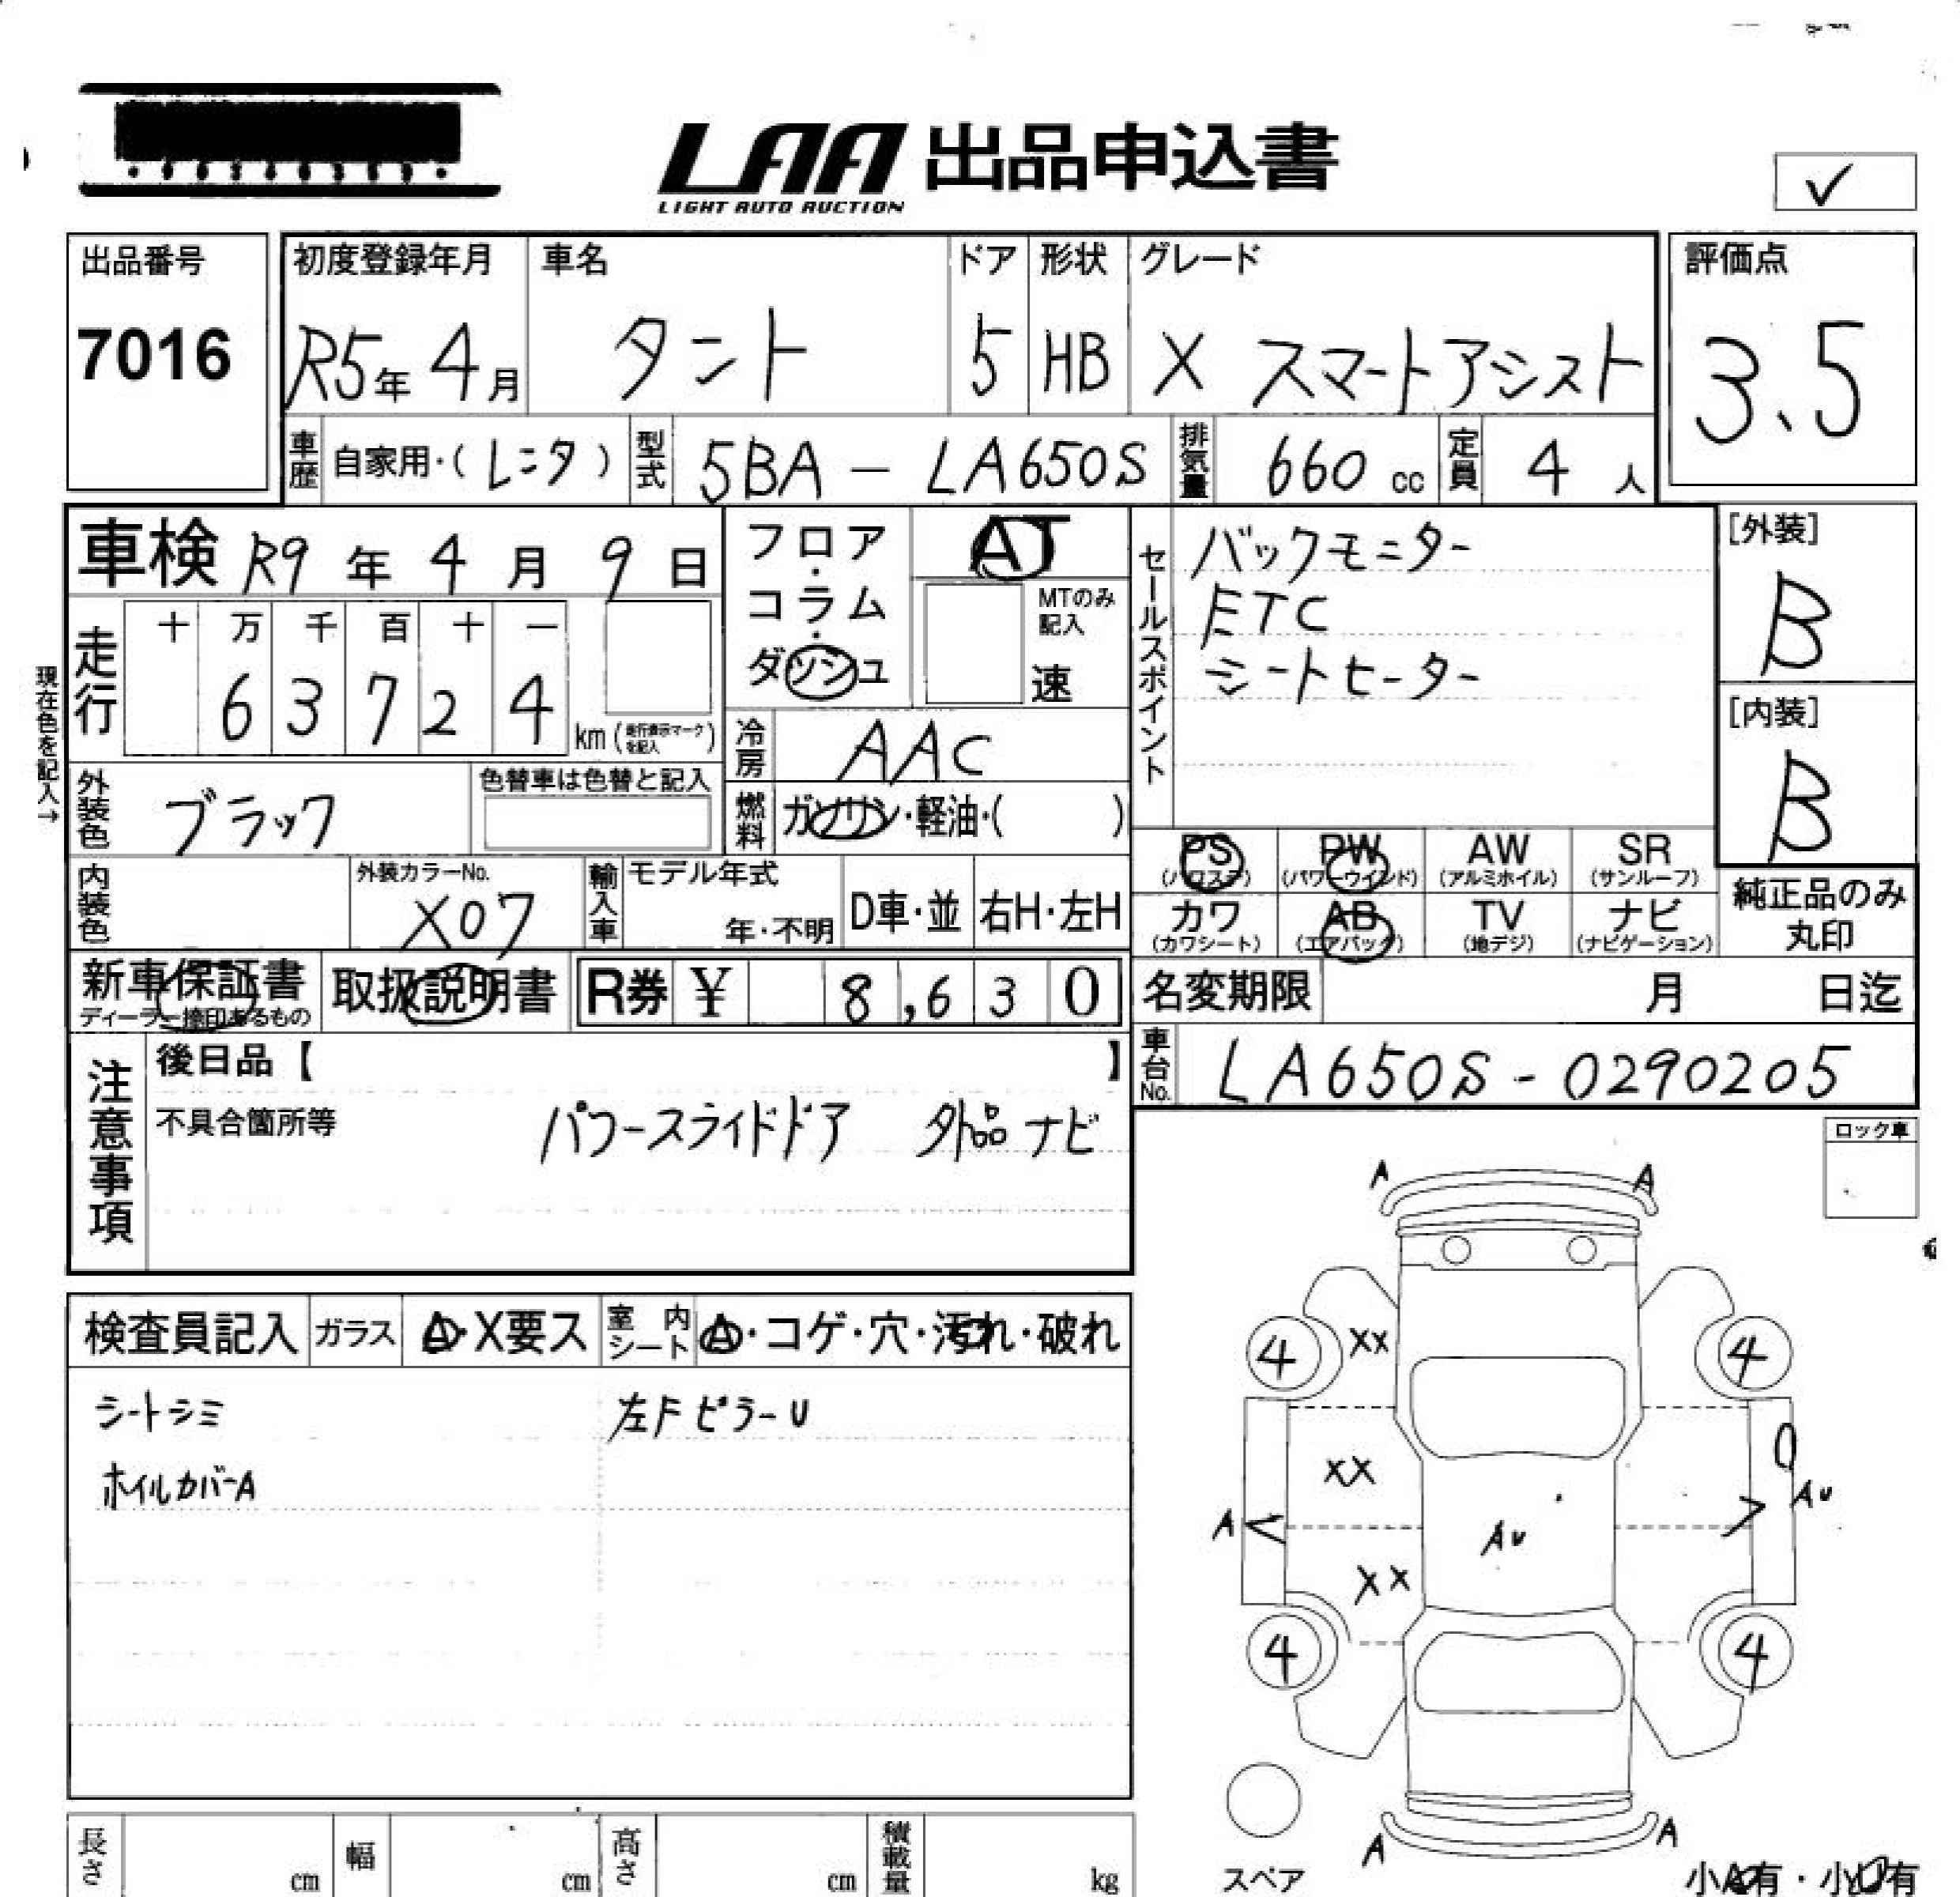 LAA 出品申込書
LIGHT AUTO AUCTION
✓
出品番号 初度登録年月 車名 ドア 形状 グレード 評価点
7016 R5年 4月 タント 5 HB X スマートアシスト 3.5
車歴 自家用・(レンタ) 型式 5BA - LA650S 排気量 660 cc 定員 4 人
車検 R9 年 4 月 9 日 フロア・コラム・ダッシュ AT
MTのみ記入 速
走行 十 万 千 百 十 一
6 3 7 2 4 km (走行表示マークを記入)
現在色を記入→
セールスポイント バックモニター
ETC
シートヒーター
[外装] B
[内装] B
冷房 AAC
外装色 ブラック 色替車は色替と記入 燃料 ガソリン・軽油・( )
内装色 外装カラーNo. X07 輸入車 モデル年式 年・不明 D車・並 右H・左H
PS (パワステ) PW (パワーウインド) AW (アルミホイル) SR (サンルーフ)
カワ (カワシート) AB (エアバッグ) TV (地デジ) ナビ (ナビゲーション)
純正品のみ丸印
新車保証書 ディーラー捺印あるもの 取扱説明書 R券 ¥ 8,630 名変期限 月 日迄
車台No. LA650S-0290205
注意事項 後日品【 】
不具合箇所等 パワースライドドア 外品ナビ
ロック車
検査員記入 ガラス A・X要ス 室内シート A・コゲ・穴・汚れ・破れ
シートシミ 左Fピラー U
ホイルカバーA
A A
4 XX 4
XX
A AU AU
XX
4 4
A A
スペア
小A有・小U有
長さ cm 幅 cm 高さ cm 積載量 kg